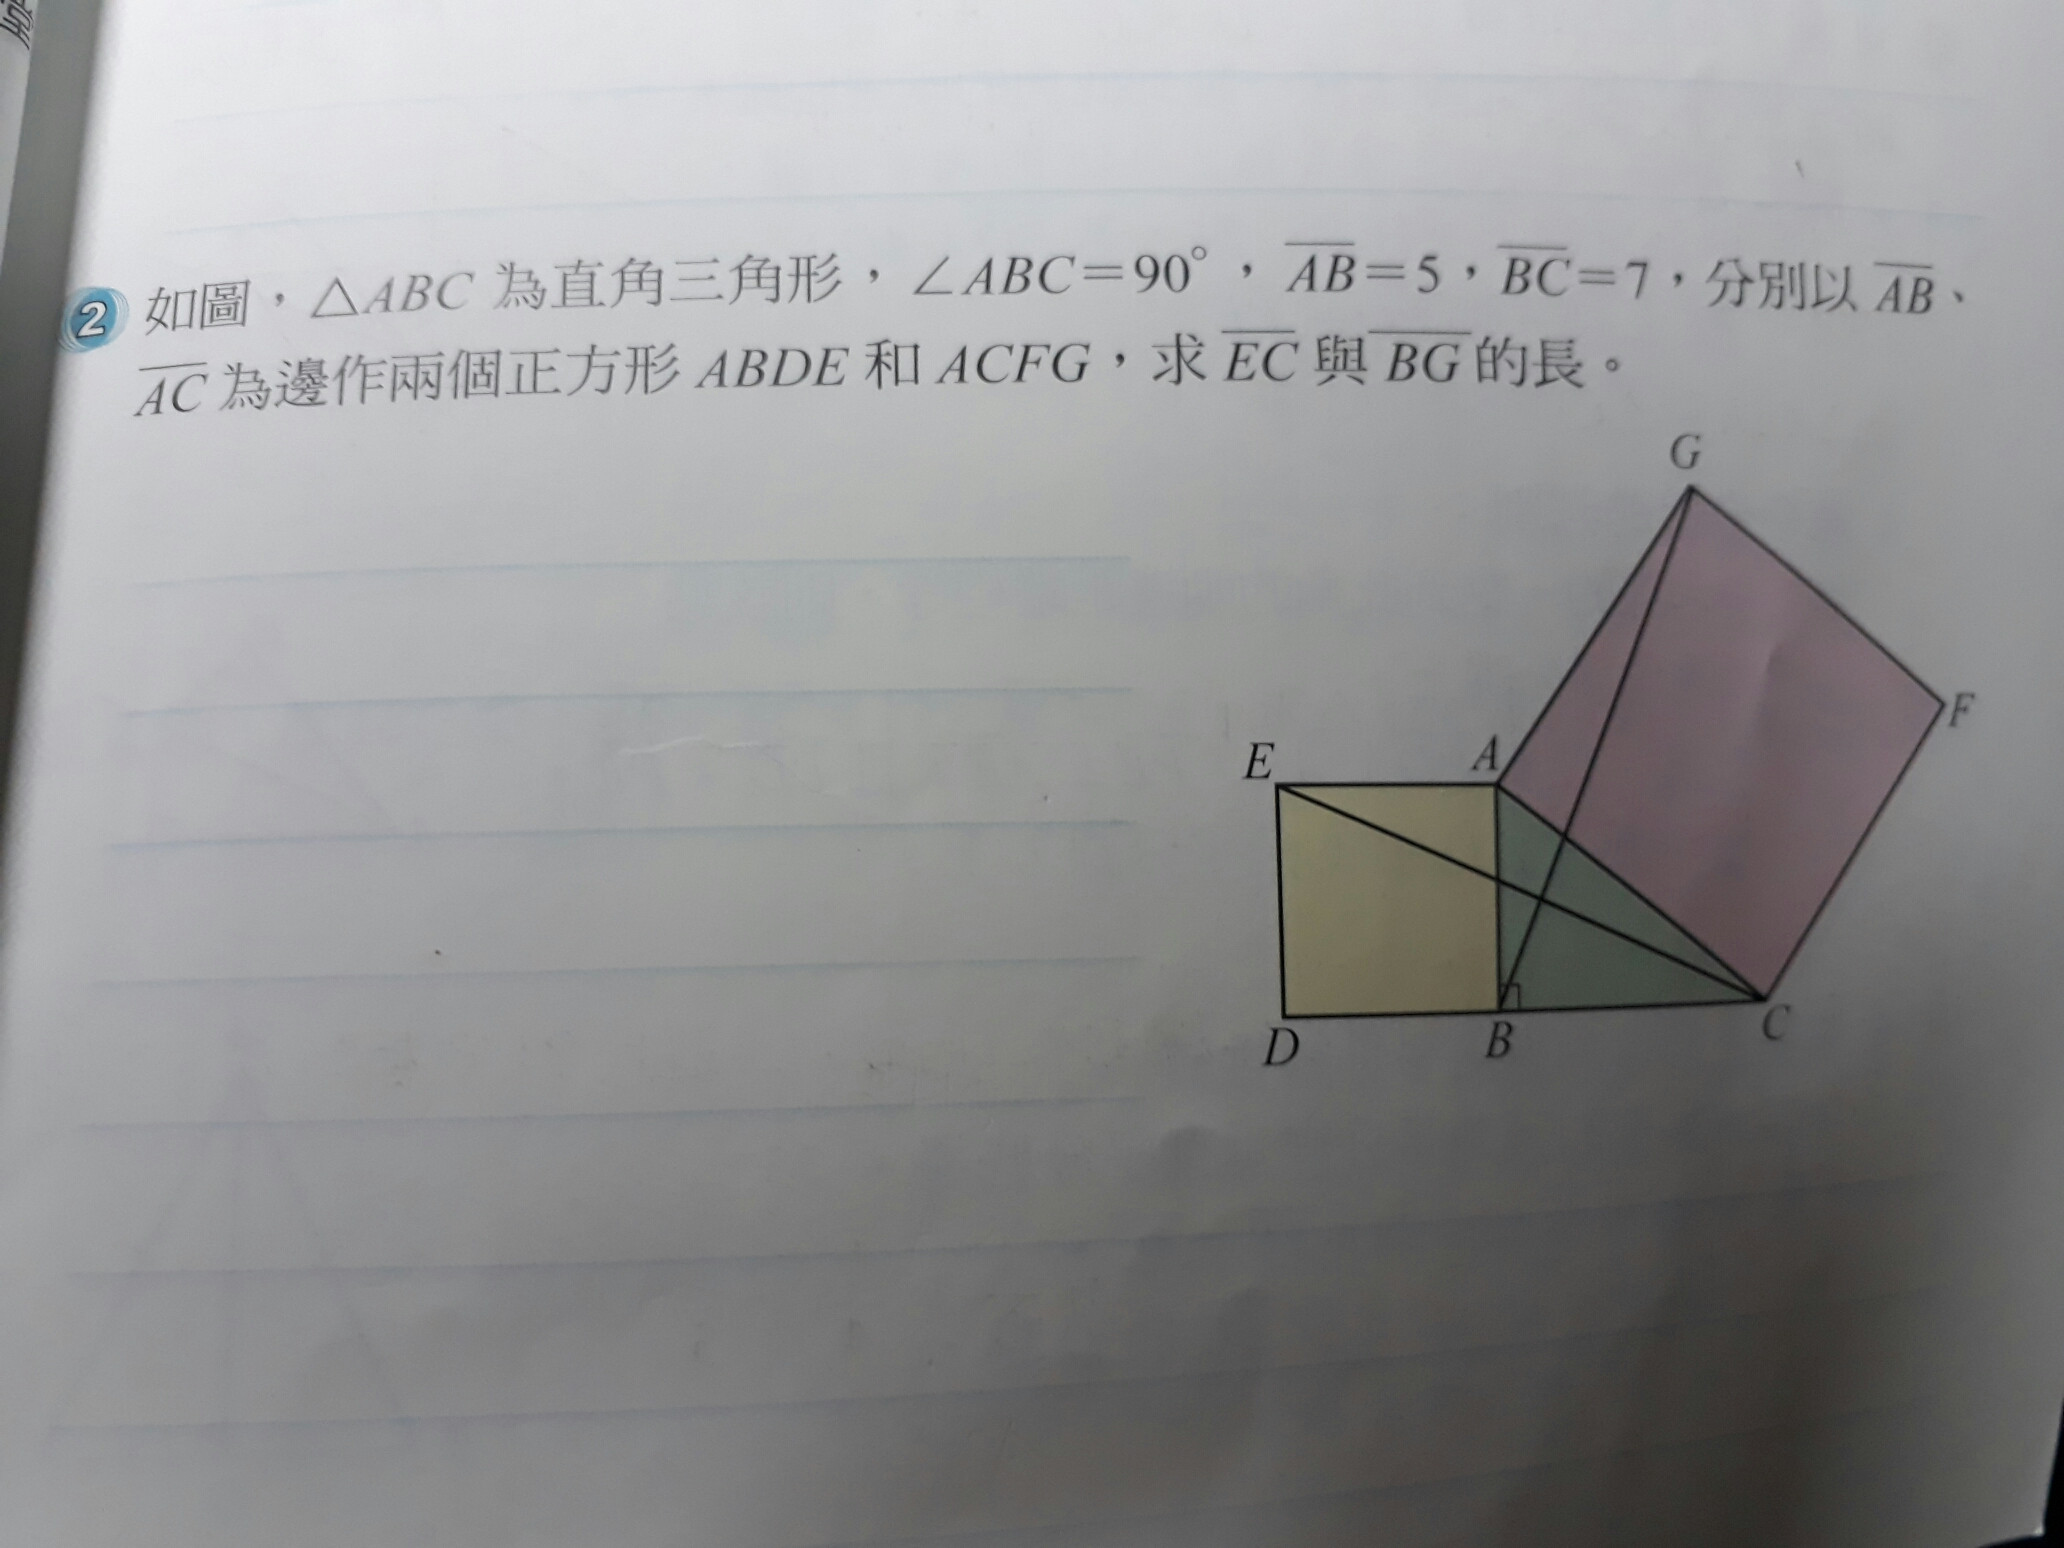 2 如圖，△ABC 為直角三角形，∠ABC=90°，AB=5，BC=7，分別以 AB、
AC 為邊作兩個正方形 ABDE 和 ACFG，求 EC 與 BG 的長。
G
F
E
A
D
B
C